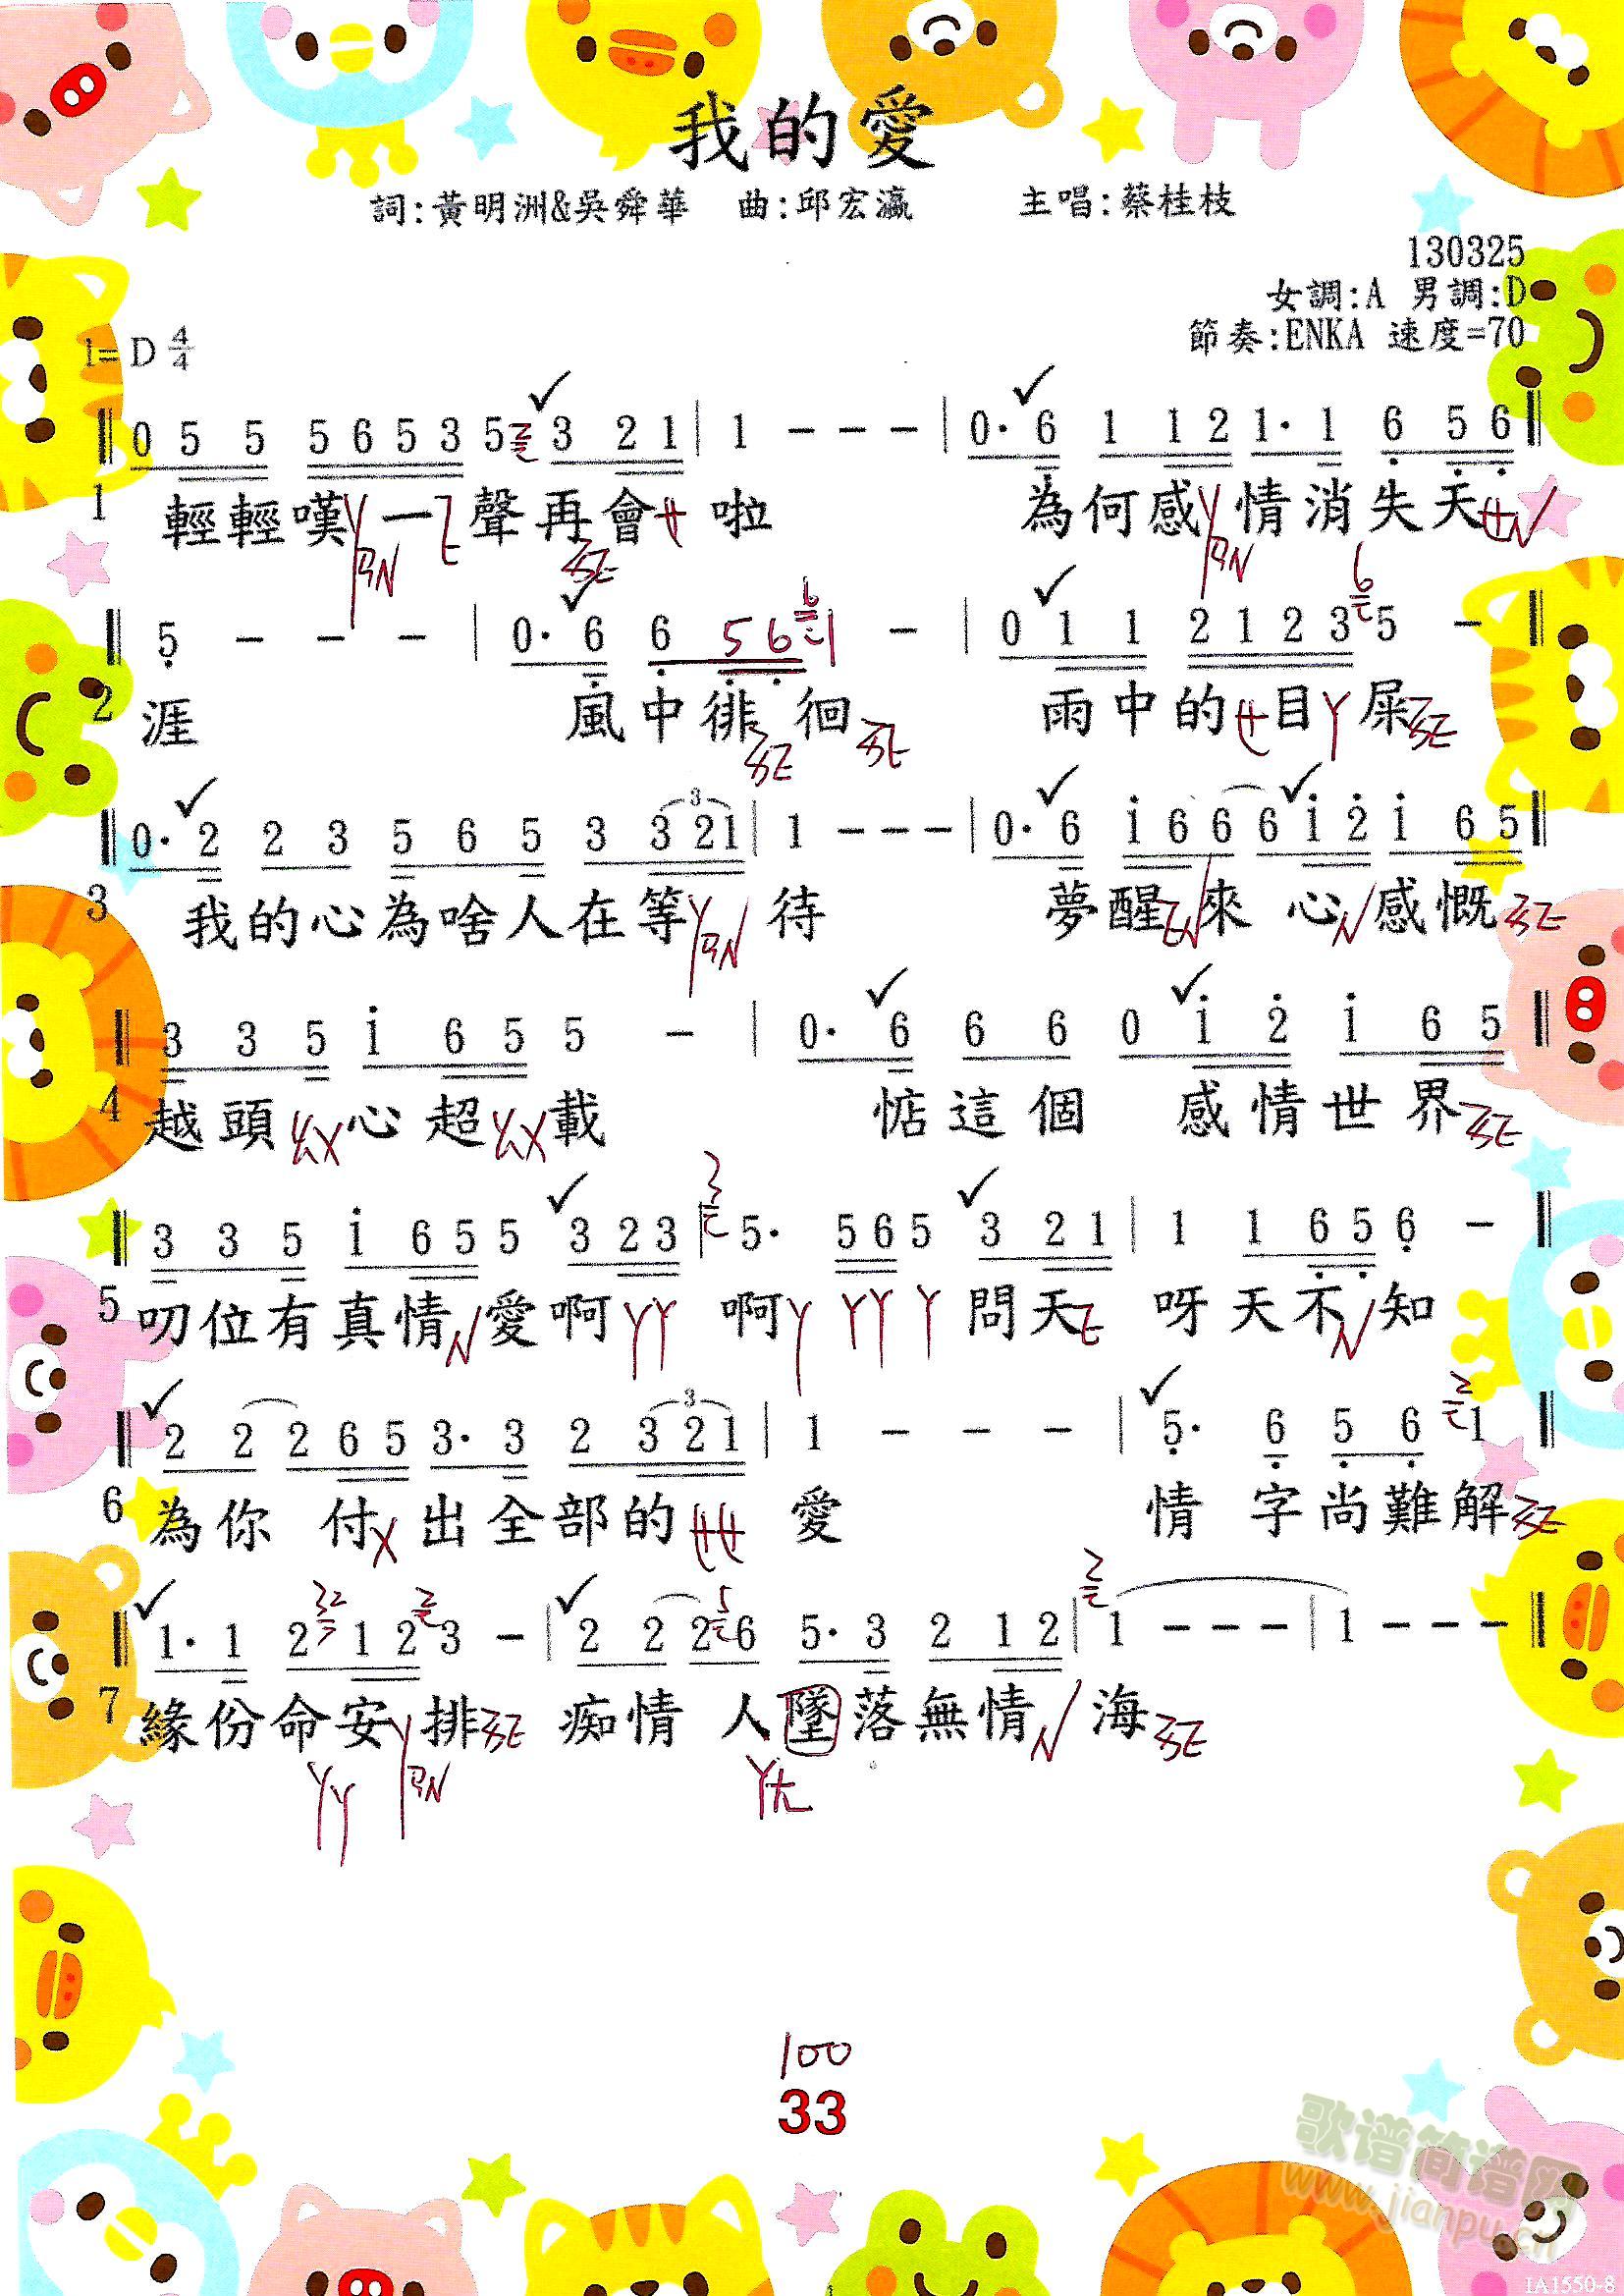 我的愛
詞:黃明洲&吳舜華 曲:邱宏瀛 主唱:蔡桂枝
130325
女調:A 男調:D
節奏:ENKA 速度=70
1=D 4/4
0 5 5 5 6 5 3 5 3 2 1 | 1 - - - | 0· 6 1 1 2 1· 1 6 5 6
1 輕輕嘆一聲再會 啦 為何感情消失天
5 - - - | 0· 6 6 5 6 1 - | 0 1 1 2 1 2 3 5 -
2 涯 風中徘徊 雨中的目屎
0· 2 2 3 5 6 5 3 3 2 1 | 1 - - - | 0· 6 1 6 6 6 1 2 1 6 5
3 我的心為啥人在等 待 夢醒來 心感慨
3 3 5 1 6 5 5 - | 0· 6 6 6 0 1 2 1 6 5
4 越頭心超載 惦這個 感情世界
3 3 5 1 6 5 5 3 2 3 | 5· 5 6 5 3 2 1 | 1 1 6 5 6 -
5 叨位有真情愛啊 啊 問天 呀天不知
2 2 2 6 5 3· 3 2 3 2 1 | 1 - - - | 5· 6 5 6 1
6 為你 付出全部的 愛 情 字尚難解
1· 1 2 1 2 3 - | 2 2 2 6 5· 3 2 1 2 | 1 - - - | 1 - - -
7 緣份命安排 痴情 人墜落無情 海
100
33
歌谱简谱网
www.jianpu.cn
IA1550-8